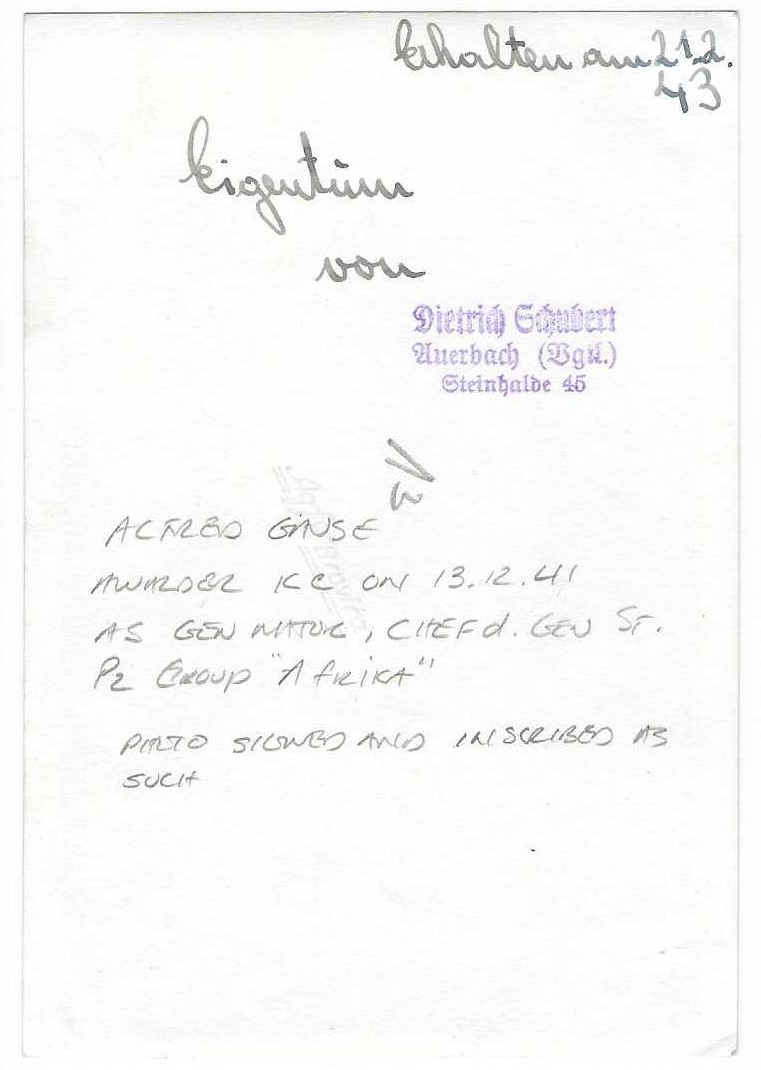 Erhalten am 21.2.
43
Eigentum
von
Dietrich Schubert
Auerbach (Vgtl.)
Steinhalde 45
ALFRED GAUSE
AWARDED KC ON 13.12.41
AS GEN MAJOR, CHEF d. GEN ST.
PZ GROUP "AFRIKA"
PHOTO SIGNED AND INSCRIBED AS
SUCH